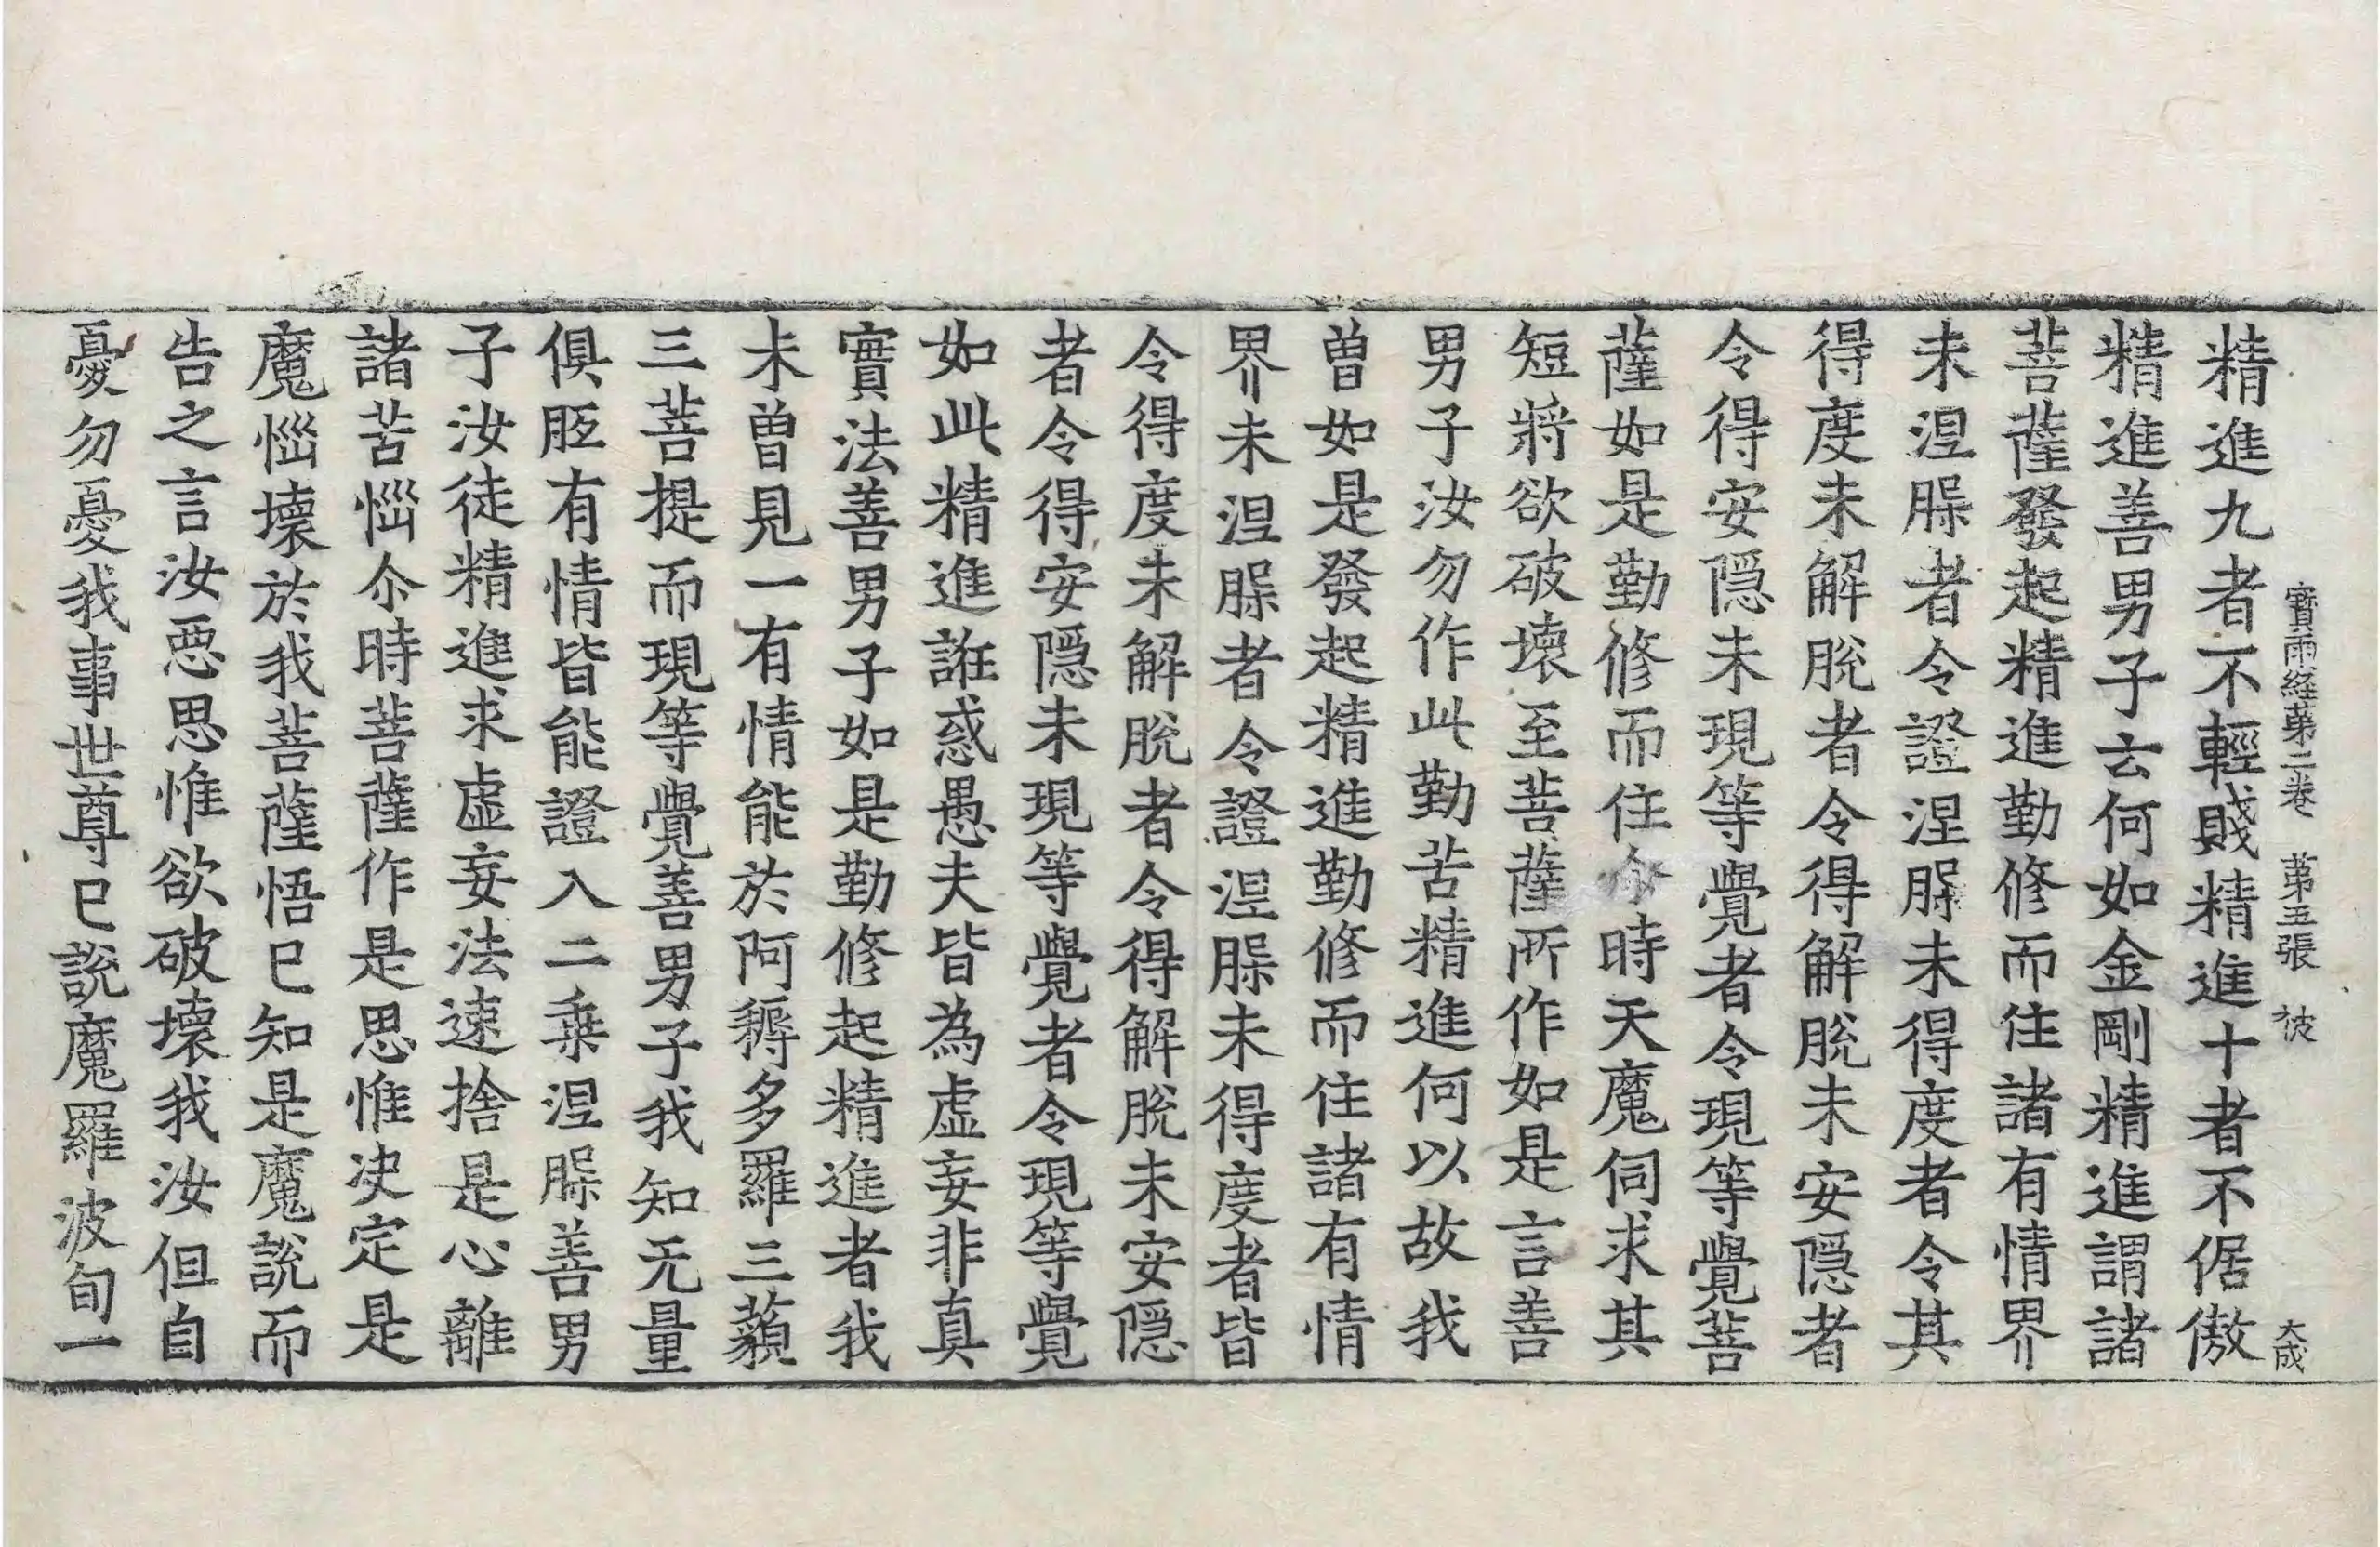 寶雨經第二卷　第五張　彼
大成
精進九者不輕賤精進十者不倨傲
精進善男子云何如金剛精進謂諸
菩薩發起精進勤修而住諸有情界
未涅槃者令證涅槃未得度者令其
得度未解脫者令得解脫未安隱者
令得安隱未現等覺者令現等覺菩
薩如是勤修而住尒時天魔伺求其
短將欲破壞至菩薩所作如是言善
男子汝勿作此勤苦精進何以故我
曾如是發起精進勤修而住諸有情
界未涅槃者令證涅槃未得度者皆
令得度未解脫者令得解脫未安隱
者令得安隱未現等覺者令現等覺
如此精進誑惑愚夫皆為虛妄非真
實法善男子如是勤修起精進者我
未曾見一有情能於阿耨多羅三藐
三菩提而現等覺善男子我知无量
俱胝有情皆能證入二乘涅槃善男
子汝徒精進求虛妄法速捨是心離
諸苦惱尒時菩薩作是思惟决定是
魔惱壞於我菩薩悟已知是魔說而
告之言汝惡思惟欲破壞我汝但自
憂勿憂我事世尊已說魔羅波旬一